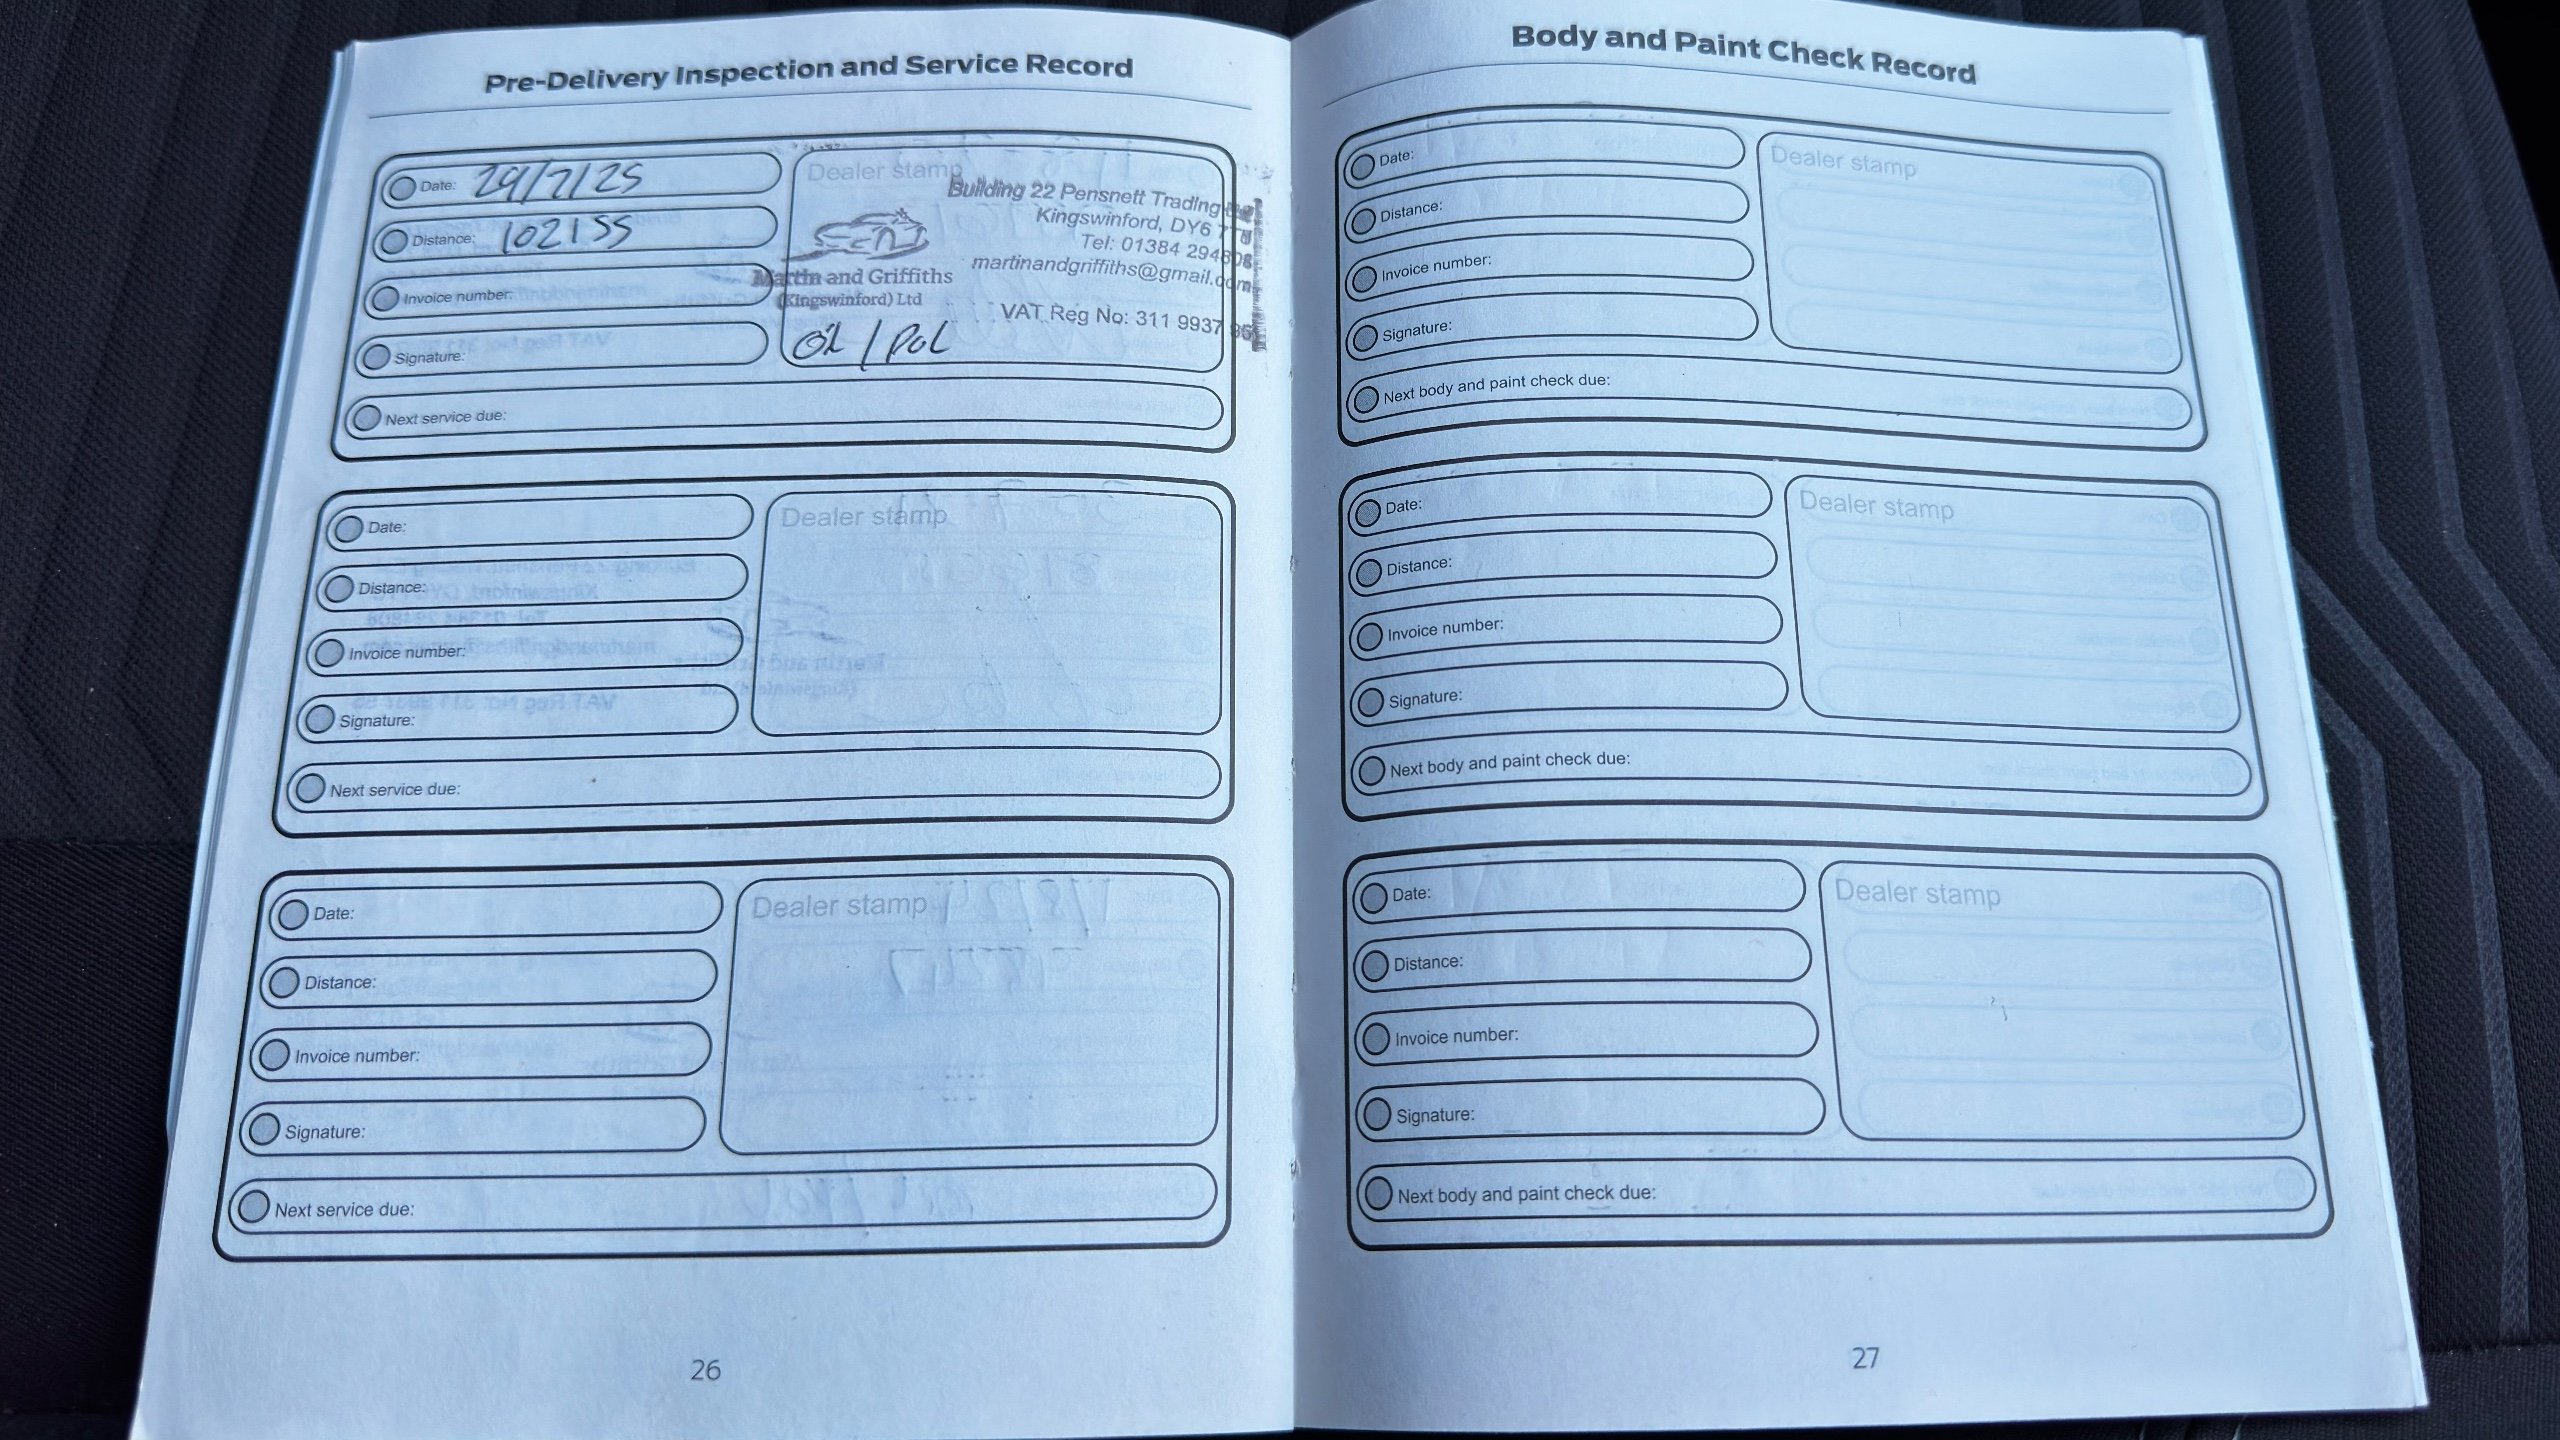 Pre-Delivery Inspection and Service Record
Date: 29/7/25
Distance: 102155
Invoice number:
Signature:
Next service due:
Dealer stamp
Building 22 Pensnett Trading
Kingswinford, DY6
Tel: 01384 294808
martinandgriffiths@gmail.com
Martin and Griffiths
(Kingswinford) Ltd
VAT Reg No: 311 9937
Oil / Pol
Date:
Distance:
Invoice number:
Signature:
Next service due:
Dealer stamp
Date:
Distance:
Invoice number:
Signature:
Next service due:
Dealer stamp
26
Body and Paint Check Record
Date:
Distance:
Invoice number:
Signature:
Next body and paint check due:
Dealer stamp
Date:
Distance:
Invoice number:
Signature:
Next body and paint check due:
Dealer stamp
Date:
Distance:
Invoice number:
Signature:
Next body and paint check due:
Dealer stamp
27